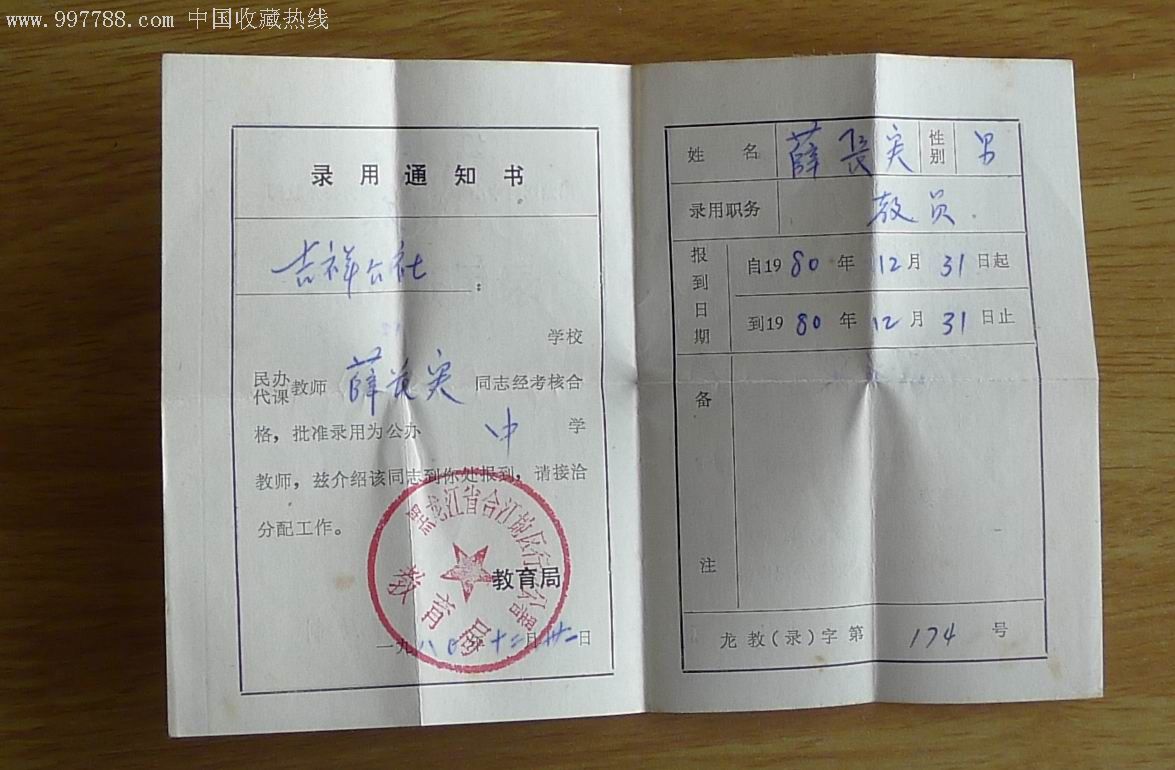 www.997788.com 中国收藏热线
录用通知书
吉祥公社：
学校
民办
代课教师 薛长实 同志经考核合
格，批准录用为公办 中 学
教师，兹介绍该同志到你处报到，请接洽
分配工作。
教育局
黑龙江省合江地区行政公署
教育局
一九八〇年十二月卅一日
姓名 薛长实 性别 男
录用职务 教员
报到日期
自1980年12月31日起
到1980年12月31日止
备注
龙教(录)字第 174 号